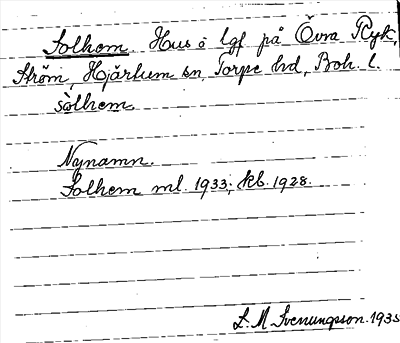 Solhem. Hus o lgf på Övra Ryk,
Ström, Hjärtum sn, Torpe hd, Boh. l.
sòlhem
Nynamn.
Solhem ml. 1933; kb. 1928.
L. M. Svenungsson. 1935